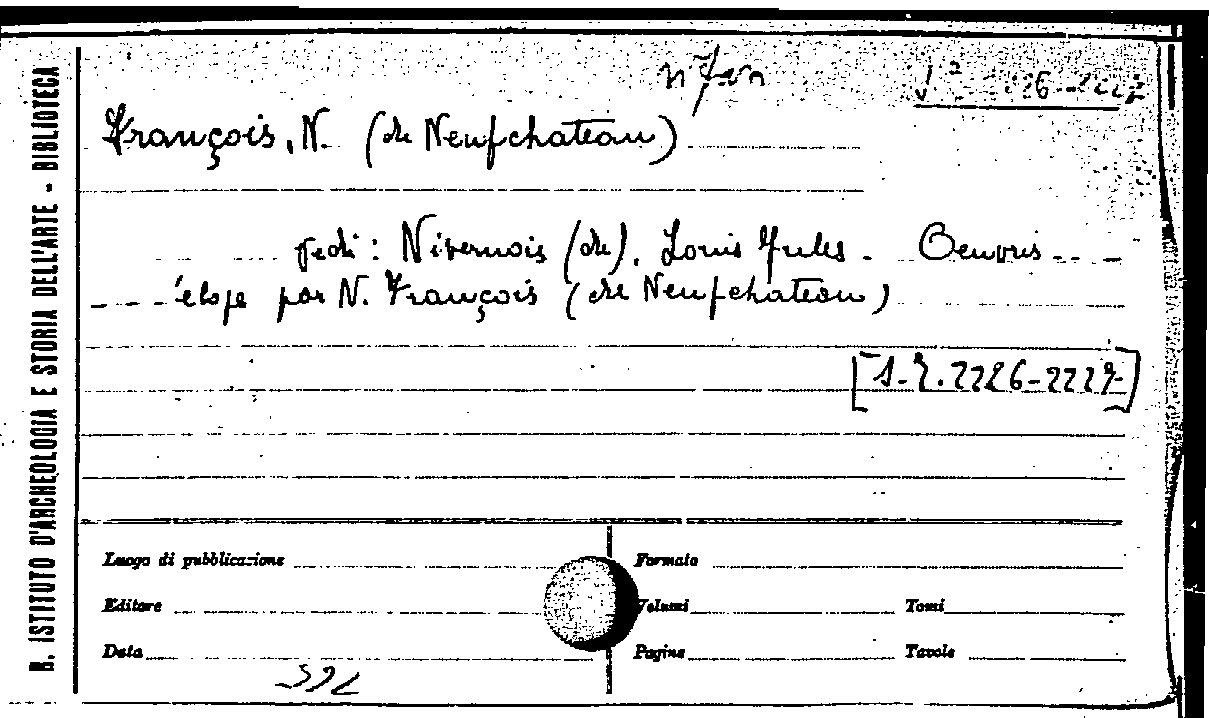 R. ISTITUTO D'ARCHEOLOGIA E STORIA DELL'ARTE - BIBLIOTECA
François, N. (de Neufchateau)
vedi: Nivernois (de), Louis Jules - Oeuvres
éloge par N. François (de Neufchateau)
Luogo di pubblicazione
Formato
Editore
Volumi
Tomi
Data
Pagine
Tavole